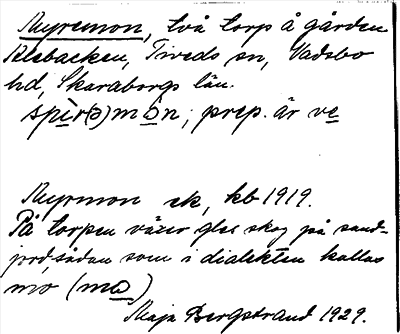 Myremon, två torp å gården
Klebacken, Tiveds sn, Vadsbo
hd, Skaraborgs län.
spìr(ə)mòn; prep. är ve
Myrmon ek, kb 1919.
På torpen växer gles skog på sand-
jord, sådan som i dialekten kallas
mo (mo)
Maja Bergstrand 1929.